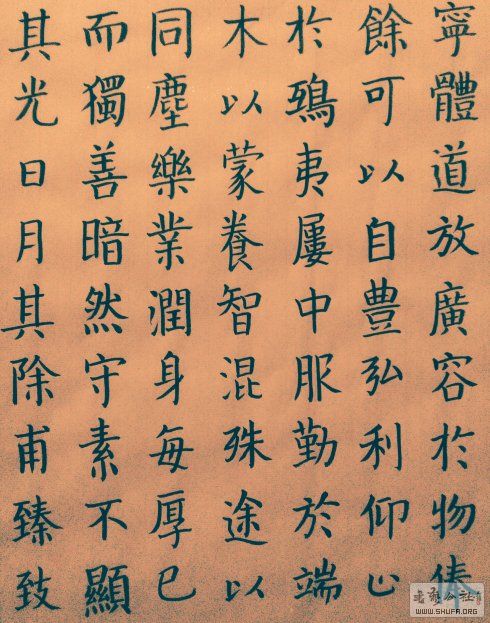 寧體道放廣容於物俸
餘可以自豊弘利仰止
於鴟夷屢中服勤於端
木以蒙養智混殊途以
同塵樂業潤身每厚己
而獨善暗然守素不顯
其光日月其除甫臻致
WWW.SHUFA.ORG